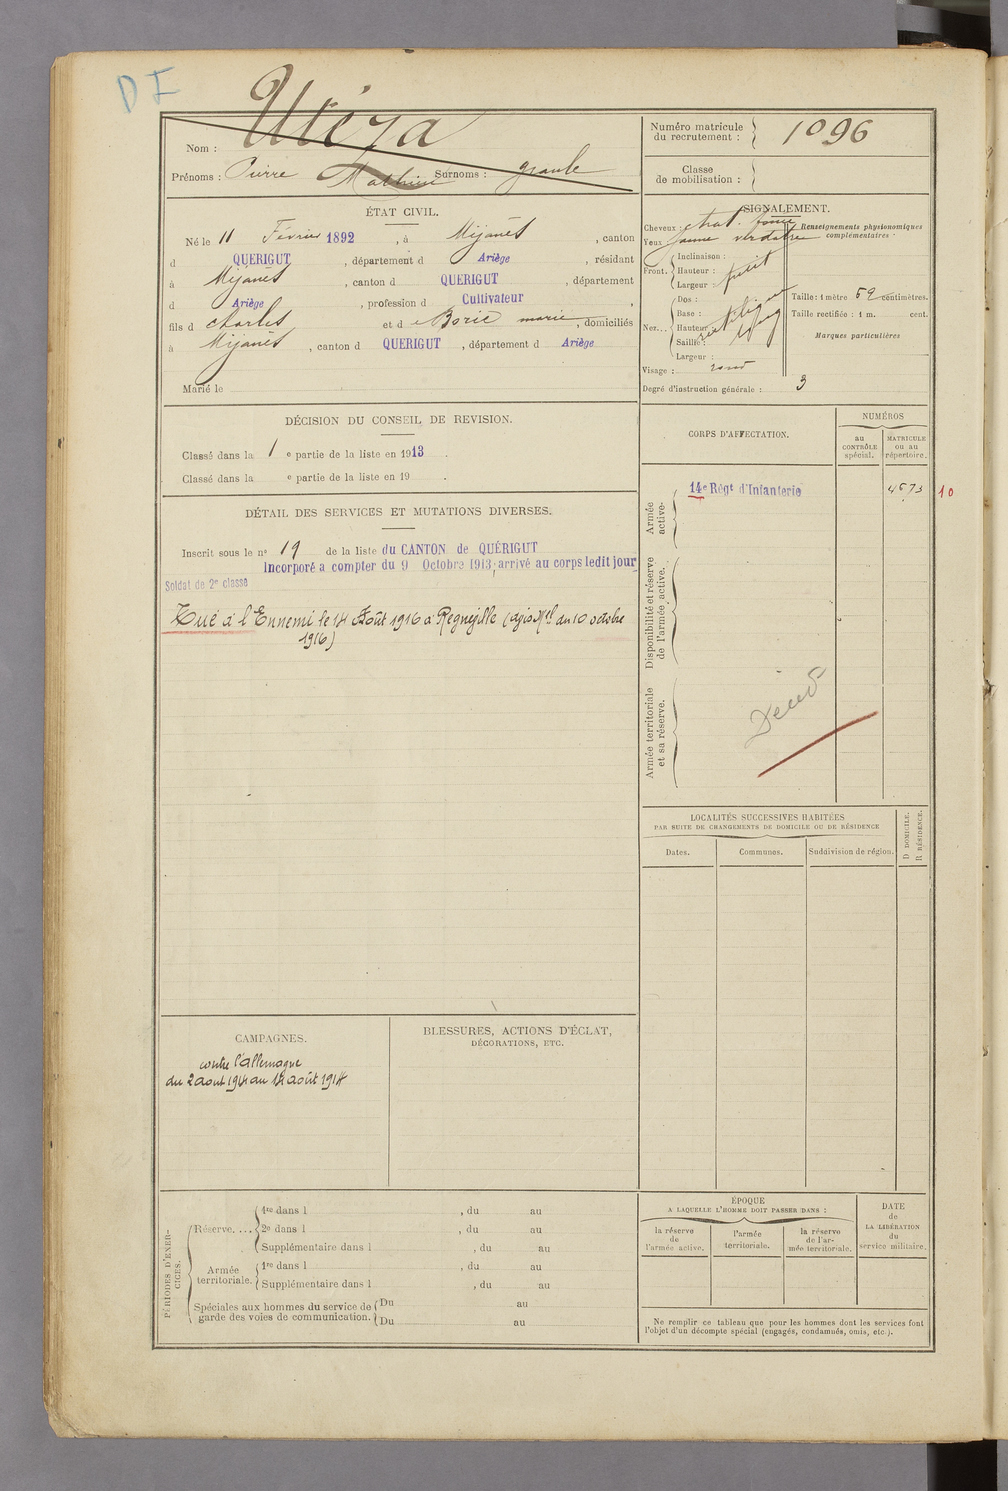 D I
Utéza
Nom :
Prénoms : Pierre Mathieu Surnoms : graule
Numéro matricule du recrutement : 1096
Classe de mobilisation :
ÉTAT CIVIL.
Né le 11 Février 1892, à Mijanès, canton
d QUERIGUT, département d Ariège, résidant
à Mijanès, canton d QUERIGUT, département
d Ariège, profession d Cultivateur,
fils d e charles et d e Boric marie, domiciliés
à Mijanès, canton d QUERIGUT, département d Ariège
Marié le
SIGNALEMENT.
Cheveux : chat. foncé
Yeux jaune verdatre
Renseignements physionomiques complémentaires
Front.
Inclinaison :
Hauteur :
Largeur : petit
Nez...
Dos :
Base :
Hauteur
Saillie :
Largeur :
Visage : rond
Taille : 1 mètre 59 centimètres.
Taille rectifiée : 1 m. cent.
Marques particulières
Degré d'instruction générale : 3
DÉCISION DU CONSEIL DE REVISION.
Classé dans la 1 e partie de la liste en 1913
Classé dans la e partie de la liste en 19 .
DÉTAIL DES SERVICES ET MUTATIONS DIVERSES.
Inscrit sous le no 19 de la liste du CANTON de QUÉRIGUT
Incorporé a compter du 9 Octobre 1913, arrivé au corps ledit jour
Soldat de 2e classe
Tué à l'Ennemi le 14 Août 1916 à Regnéville (avis Mel du 10 octobre
1916)
CORPS D'AFFECTATION.
NUMÉROS
au CONTRÔLE spécial.
MATRICULE ou au répertoire.
Armée active.
14e Régt d'Infanterie 4573 10
Disponibilité et réserve de l'armée active.
Armée territoriale et sa réserve.
LOCALITÉS SUCCESSIVES HABITÉES
PAR SUITE DE CHANGEMENTS DE DOMICILE OU DE RÉSIDENCE
Dates.
Communes.
Subdivision de région.
D DOMICILE.
R RÉSIDENCE.
CAMPAGNES.
contre l'allemagne
du 2 aout 1914 au 14 août 1914
BLESSURES, ACTIONS D'ÉCLAT,
DÉCORATIONS, ETC.
PÉRIODES D'EXER-
CICES.
Réserve....
1re dans l , du au
2e dans l , du au
Supplémentaire dans l , du au
Armée territoriale.
1re dans l , du au
Supplémentaire dans l , du au
Spéciales aux hommes du service de garde des voies de communication.
Du au
Du au
ÉPOQUE
A LAQUELLE L'HOMME DOIT PASSER DANS :
la réserve de l'armée active.
l'armée territoriale.
la réserve de l'ar-
mée territoriale.
DATE
de
LA LIBÉRATION
du
service militaire.
Ne remplir ce tableau que pour les hommes dont les services font
l'objet d'un décompte spécial (engagés, condamnés, omis, etc.).